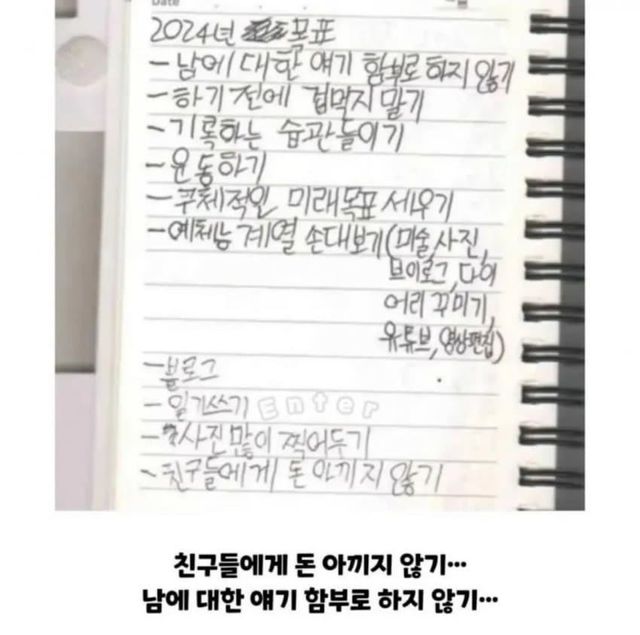 Date
2024년 목표
- 남에 대한 얘기 함부로 하지 않기
- 하기 전에 겁먹지 말기
- 기록하는 습관들이기
- 운동하기
- 구체적인 미래목표 세우기
- 예체능 계열 손대보기(미술,사진,
브이로그,다이
어리 꾸미기,
유튜브,영상편집)
- 블로그
- 일기쓰기 Enter
- 사진 많이 찍어두기
- 친구들에게 돈 아끼지 않기
친구들에게 돈 아끼지 않기...
남에 대한 얘기 함부로 하지 않기...